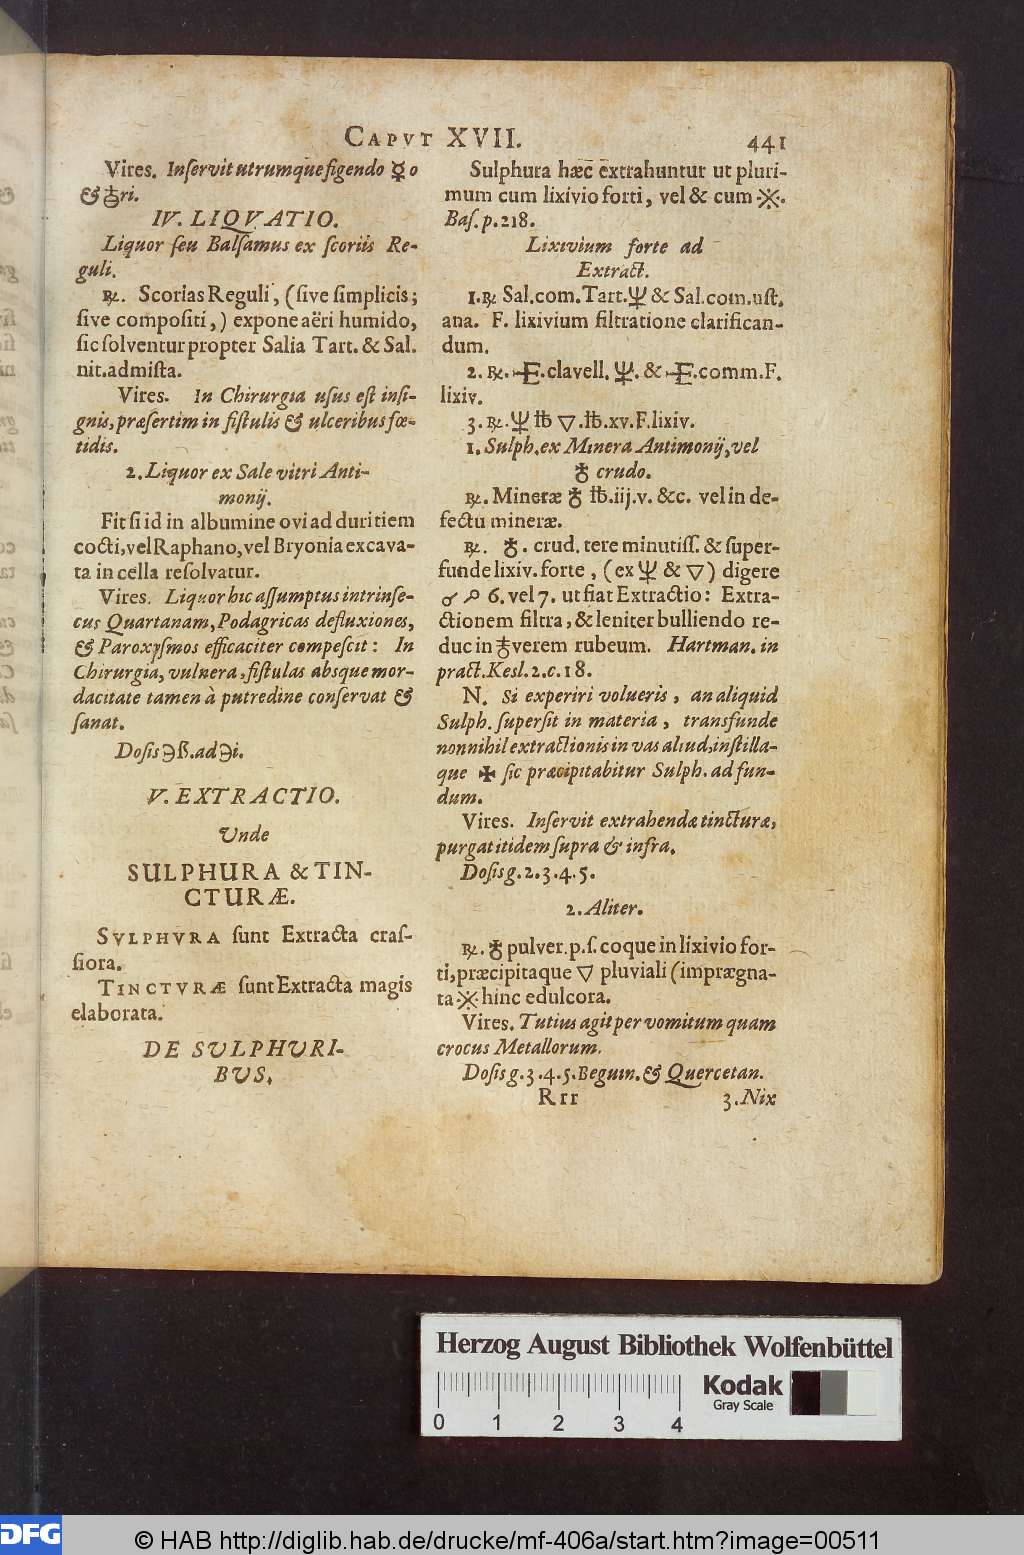 CAPVT XVII. 441
Vires. Inſervit utrumque figendo ☿ o
& ♁ri.
IV. LIQVATIO.
Liquor ſeu Balſamus ex ſcoriis Re-
guli.
℞. Scorias Reguli, (ſive ſimplicis;
ſive compoſiti,) expone aëri humido,
ſic ſolventur propter Salia Tart. & Sal.
nit. admiſta.
Vires. In Chirurgia uſus eſt inſi-
gnis, præſertim in fiſtulis & ulceribus fœ-
tidis.
2. Liquor ex Sale vitri Anti-
monij.
Fit ſi id in albumine ovi ad duritiem
cocti, vel Raphano, vel Bryonia excava-
ta in cella reſolvatur.
Vires. Liquor hic aſſumptus intrinſe-
cus Quartanam, Podagricas defluxiones,
& Paroxyſmos efficaciter compeſcit: In
Chirurgia, vulnera, fiſtulas absque mor-
dacitate tamen à putredine conſervat &
ſanat.
Doſis ℈ß. ad ℈i.
V. EXTRACTIO.
Unde
SULPHURA & TIN-
CTURÆ.
SVLPHVRA ſunt Extracta craſ-
ſiora.
TINCTVRÆ ſunt Extracta magis
elaborata.
DE SULPHURI-
BUS.
Sulphura hæc extrahuntur ut pluri-
mum cum lixivio forti, vel & cum ※.
Baſ. p. 218.
Lixivium forte ad
Extract.
1. ℞ Sal. com. Tart. 🜿 & Sal. com. uſt.
ana. F. lixivium filtratione clarifican-
dum.
2. ℞. clavell. 🜿. & comm. F.
lixiv.
3. ℞. 🜿 ℔ 🜄. ℔. xv. F. lixiv.
1. Sulph. ex Minera Antimonij, vel
♁ crudo.
℞. Mineræ ♁ ℔. iij. v. &c. vel in de-
fectu mineræ.
℞. ♁. crud. tere minutiſſ. & ſuper-
funde lixiv. forte, (ex 🜿 & 🜄) digere
6. vel 7. ut fiat Extractio: Extra-
ctionem filtra, & leniter bulliendo re-
duc in ♁verem rubeum. Hartman. in
pract. Kesl. 2. c. 18.
N. Si experiri volueris, an aliquid
Sulph. ſuperſit in materia, transfunde
nonnihil extractionis in vas aliud, inſtilla-
que ✠ ſic præcipitabitur Sulph. ad fun-
dum.
Vires. Inſervit extrahendæ tincturæ,
purgat itidem ſupra & infra.
Doſis g. 2. 3. 4. 5.
2. Aliter.
℞. ♁ pulver. p. ſ. coque in lixivio for-
ti, præcipitaque 🜄 pluviali (imprægna-
ta ※ hinc edulcora.
Vires. Tutius agit per vomitum quam
crocus Metallorum.
Doſis g. 3. 4. 5. Beguin. & Quercetan.
Rrr 3. Nix
Herzog August Bibliothek Wolfenbüttel
0 1 2 3 4
Kodak
Gray Scale
DFG
© HAB http://diglib.hab.de/drucke/mf-406a/start.htm?image=00511